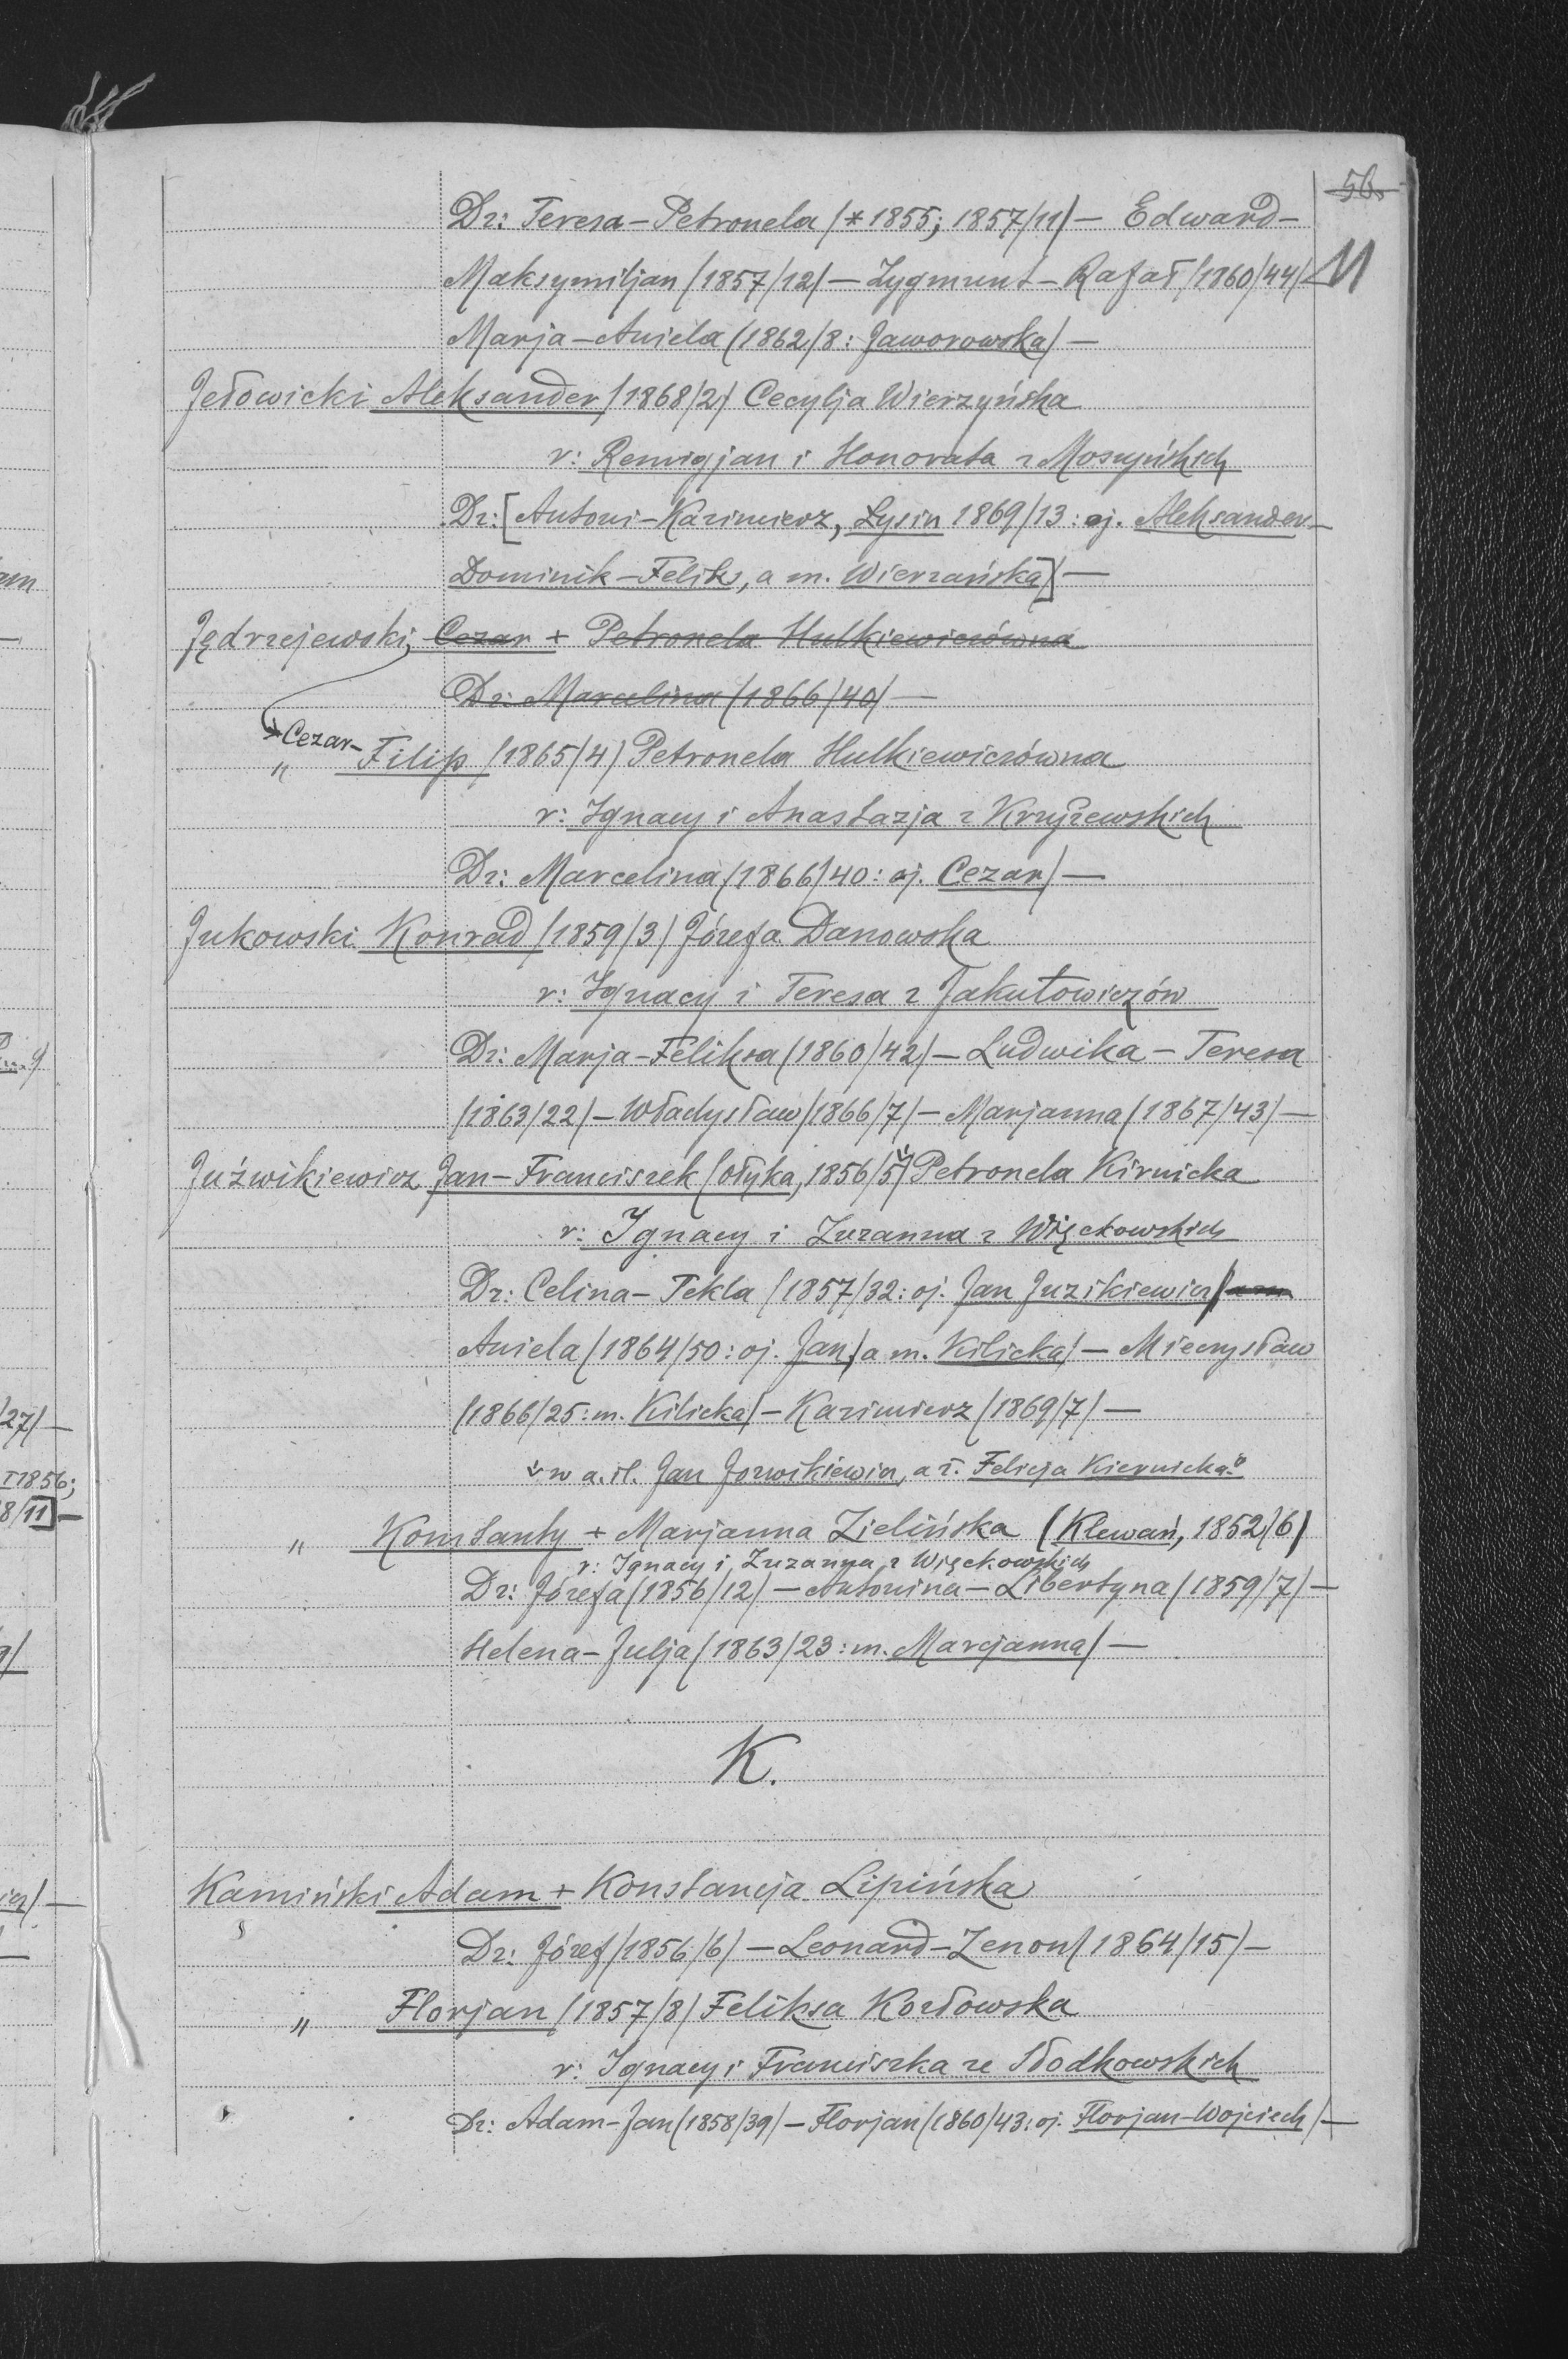 56.
11
Dz: Teresa-Petronela (*1855; 1857/11) — Edward-
Maksymiljan (1857/12) — Zygmunt-Rafał (1860/44) —
Marja-Aniela (1862/8: Jaworowska) —
Jełowicki Aleksander (1868/2) Cecylja Wierzyńska
r: Remigjan i Honorata z Moszyńskich
Dz: [Antoni-Kazimierz, Łysin 1869/13: oj. Aleksander-
Dominik-Feliks, a m. Wierzańska] —
Jędrzejewski, Cezar + Petronela Hulkiewiczówna
Dz: Marcelina (1866/40) —
Cezar-
" Filip (1865/4) Petronela Hulkiewiczówna
r: Ignacy i Anastazja z Kryżewskich
Dz: Marcelina (1866/40: oj. Cezar) —
Jukowski Konrad (1859/3) Józefa Danowska
r: Ignacy i Teresa z Jakutowiczów
Dz: Marja-Feliksa (1860/42) — Ludwika-Teresa
(1863/22) — Władysław (1866/7) — Marjanna (1867/43) —
Juźwikiewicz Jan-Franciszek (Ołyka, 1856/5) Petronela Kirnicka
r: Ignacy i Zuzanna z Więckowskich
Dz: Celina-Tekla (1857/32: oj. Jan Juzikiewicz)
Aniela (1864/50: oj. Jan, a m. Kilicka) — Mieczysław
(1866/25: m. Kilicka) — Kazimierz (1869/7) —
w a. śl. Jan Jozwikiewicz, a ż. Felicja Kiernicka
" Konstanty + Marjanna Zielińska (Klewań, 1852/6)
r: Ignacy i Zuzanna z Więckowskich
Dz: Józefa (1856/12) — Antonina-Libertyna (1859/7) —
Helena-Julja (1863/23: m. Marcjanna) —
K.
Kamiński Adam + Konstancja Lipińska
Dz: Józef (1856/6) — Leonard-Zenon (1864/15) —
" Florjan (1857/8) Feliksa Kozłowska
r: Ignacy i Franciszka ze Słodkowskich
Dz: Adam-Jan (1858/39) — Florjan (1860/43: oj. Florjan-Wojciech) —
27/ —
1856;
8/11] —